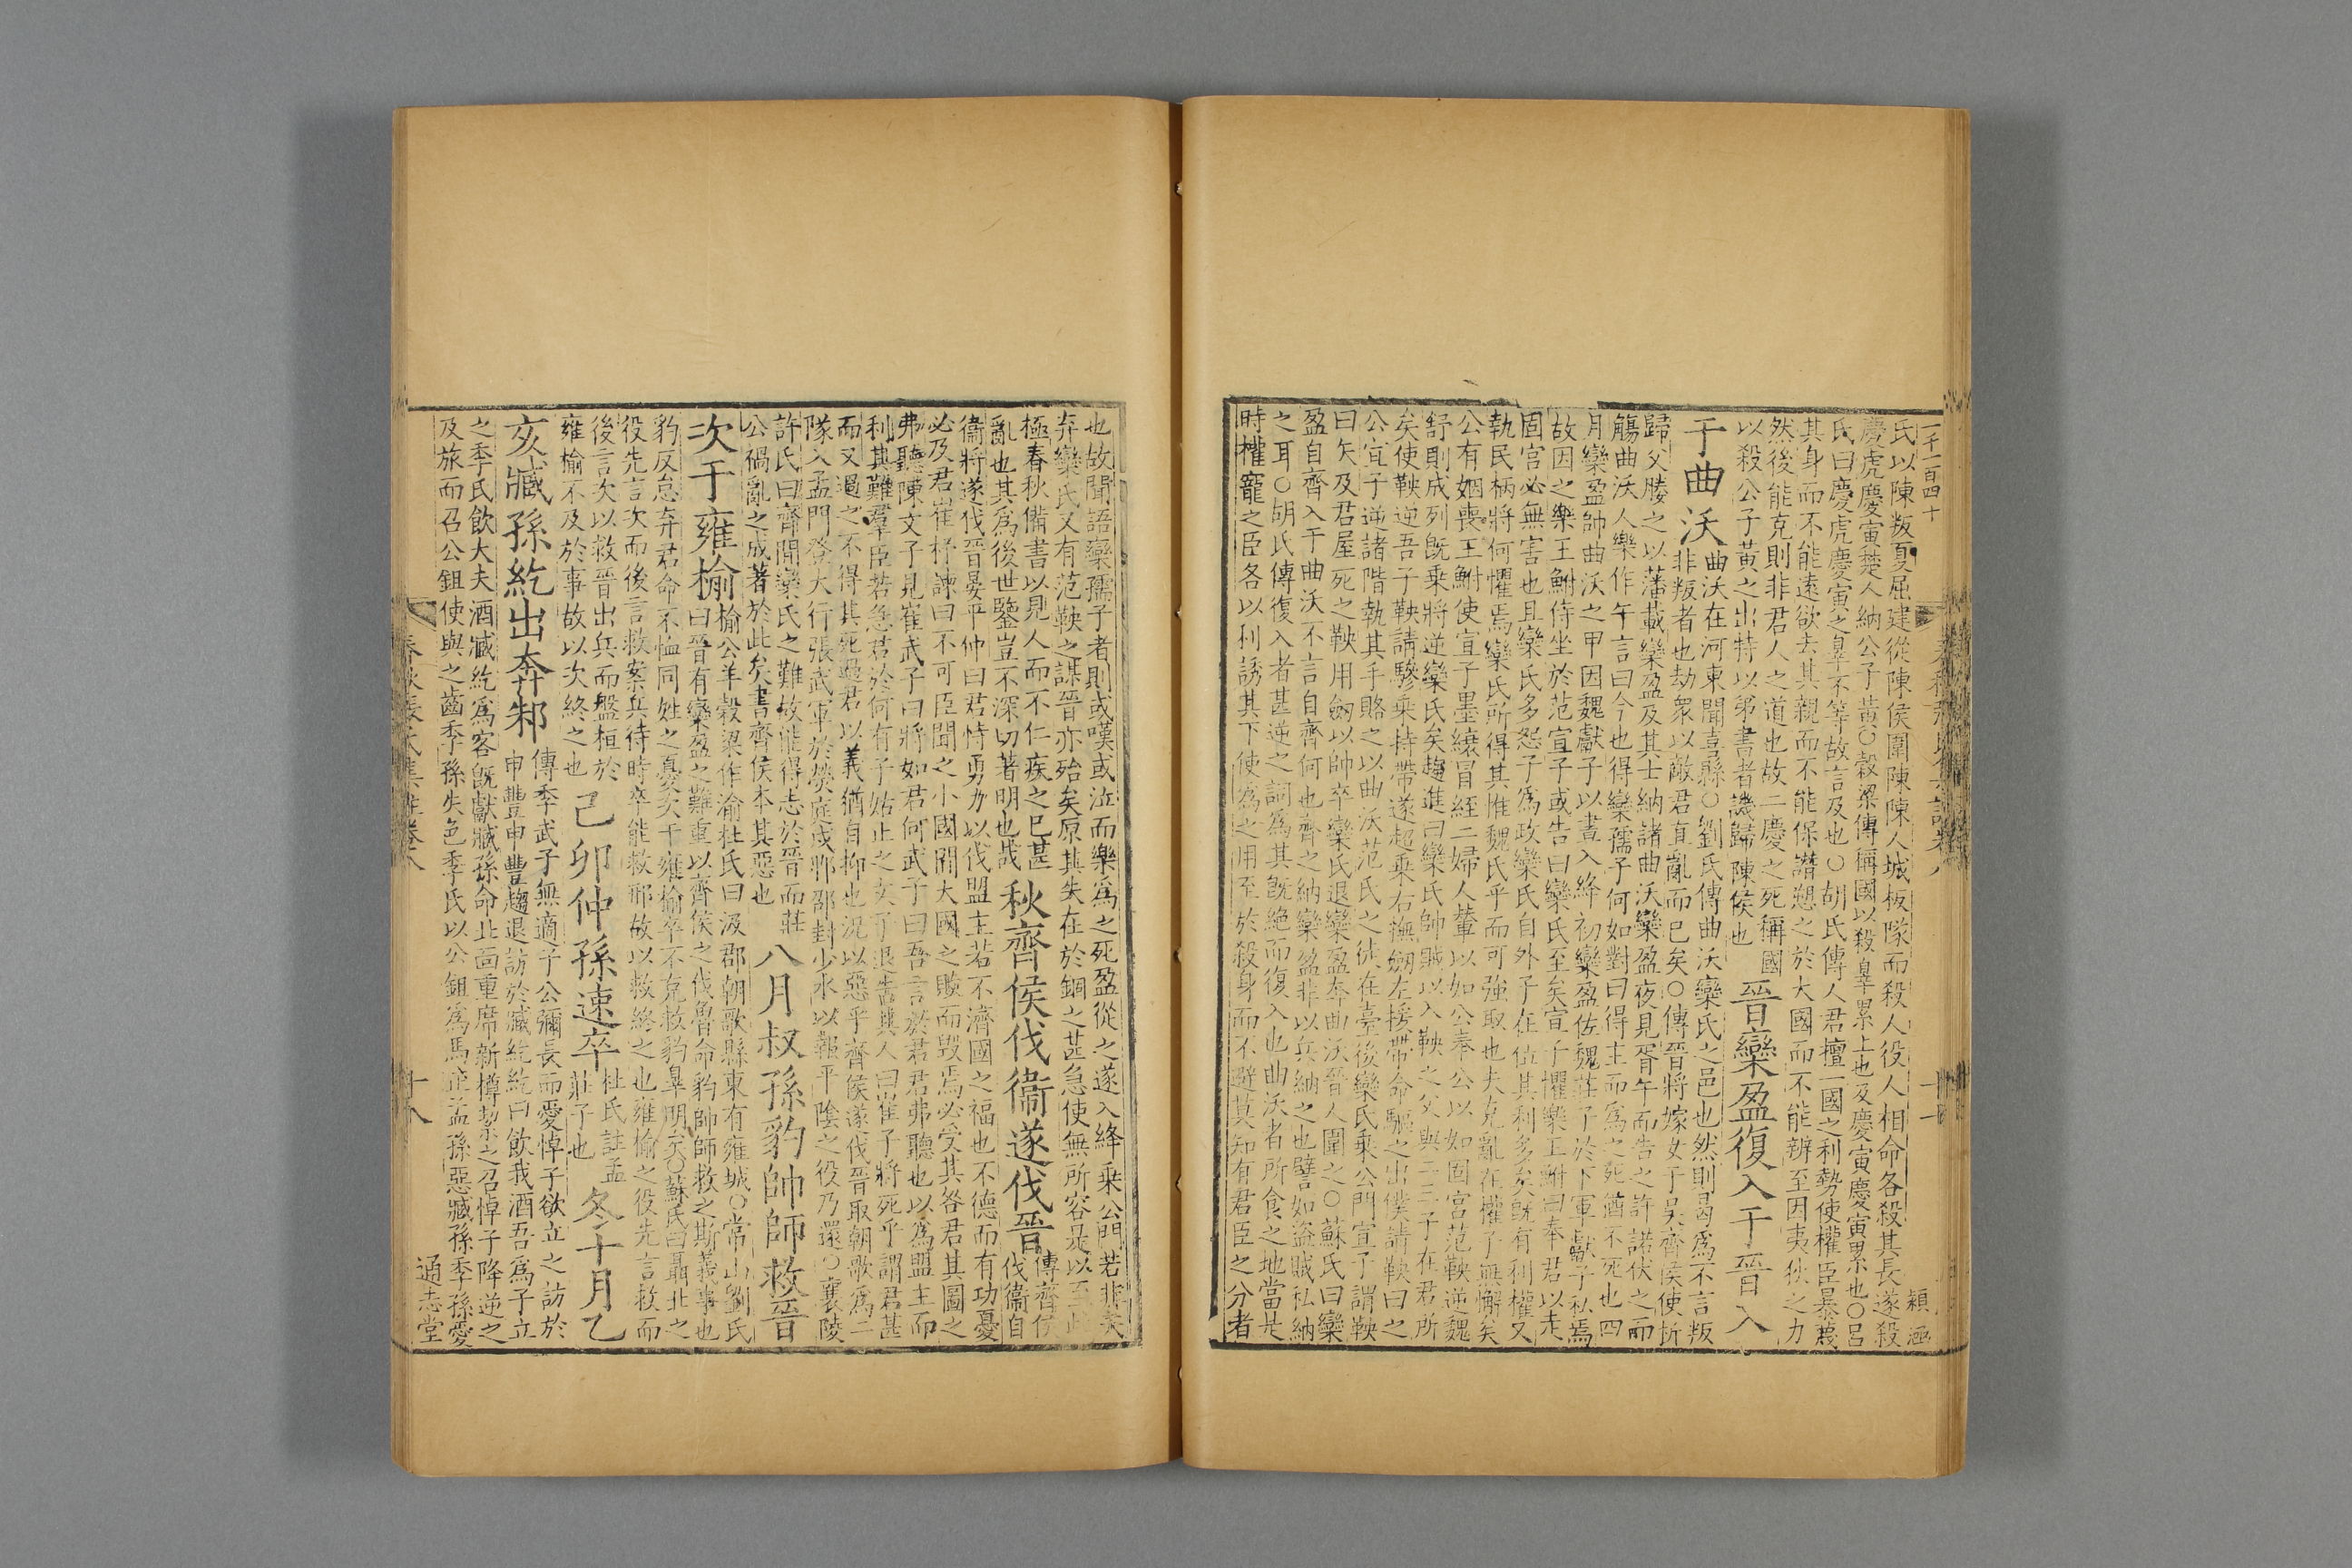 一千一百四十
氏以陳叛夏屈建從陳侯圍陳陳人城板隊而殺人役人相命各殺其長遂殺
慶虎慶寅楚人納公子黃○穀梁傳稱國以殺辠累上也及慶寅慶寅累也○呂
氏曰慶虎慶寅之辠不等故言及也○胡氏傳人君擅一國之利勢使權臣暴蔑
其身而不能遠欲去其親而不能保譖愬之於大國而不能辨至因夷狄之力
然後能克則非君人之道也故二慶之死稱國
以殺公子黃之出特以弟書者譏歸陳侯也
晉欒盈復入于晉入
于曲沃
曲沃在河東聞喜縣○劉氏傳曲沃欒氏之邑也然則曷為不言叛
非叛者也劫衆以敵君直亂而已矣○傳晉將嫁女于吳齊侯使析
歸父媵之以藩載欒盈及其士納諸曲沃欒盈夜見胥午而告之許諾伏之而
觴曲沃人樂作午言曰今也得欒孺子何如對曰得主而爲之死猶不死也四
月欒盈帥曲沃之甲因魏獻子以晝入絳初欒盈佐魏莊子於下軍獻子私焉
故因之樂王鮒侍坐於范宣子或告曰欒氏至矣宣子懼樂王鮒曰奉君以走
固宮必無害也且欒氏多怨子爲政欒氏自外子在位其利多矣既有利權又
執民柄將何懼焉欒氏所得其惟魏氏乎而可強取也夫克亂在權子無懈矣
公有姻喪王鮒使宣子墨縗冒絰二婦人輦以如公奉公以如固宮范鞅逆魏
舒則成列既乗將逆欒氏矣趨進曰欒氏帥賊以入鞅之父與二三子在君所
矣使鞅逆吾子鞅請驂乗持帶遂超乗右撫劒左援帶命驅之出僕請鞅曰之
公宣子逆諸階執其手賂之以曲沃范氏之徒在臺後欒氏乗公門宣子謂鞅
曰矢及君屋死之鞅用劒以帥卒欒氏退欒盈奔曲沃晉人圍之○蘇氏曰欒
盈自齊入于曲沃不言自齊何也齊之納欒盈非以兵納之也譬如盜賊私納
之耳○胡氏傳復入者甚逆之詞爲其旣絶而復入也曲沃者所食之地當是
時權寵之臣各以利誘其下使爲之用至於殺身而不避其知有君臣之分者
也故聞語欒孺子者則或嘆或泣而樂爲之死盈從之遂入絳乗公門若非天
弃欒氏又有范鞅之謀晉亦殆矣原其失在於錮之甚急使無所容是以至此
極春秋備書以見人而不仁疾之已甚
亂也其爲後世鑒豈不深切著明也哉
秋齊侯伐衞遂伐晉
傳齊侯
伐衞自
衞將遂伐晉晏平仲曰君恃勇力以伐盟主若不濟國之福也不德而有功憂
必及君崔杼諫曰不可臣聞之小國間大國之敗而毀焉必受其咎君其圖之
弗聽陳文子見崔武子曰將如君何武子曰吾言於君君弗聽也以爲盟主而
利其難羣臣若急君於何有子姑止之文子退告其人曰崔子將死乎謂君甚
而又過之不得其死過君以義猶自抑也況以惡乎齊侯遂伐晉取朝歌爲二
隊入孟門登大行張武軍於熒庭戍郫邵封少水以報平陰之役乃還○襄陵
許氏曰齊間欒氏之難故能得志於晉而莊
公禍亂之成著於此矣書齊侯本其惡也
八月叔孫豹帥師救晉
次于雍榆
榆公羊穀梁作渝杜氏曰汲郡朝歌縣東有雍城○常山劉氏
曰晉有欒盈之難重以齊侯之伐魯命豹帥師救之斯義事也
豹反怠弃君命不恤同姓之憂次于雍榆卒不克救豹辠明矣○蘇氏曰聶北之
役先言次而後言救案兵待時卒能救邢故以救終之也雍榆之役先言救而
後言次以救晉出兵而盤桓於
雍榆不及於事故以次終之也
己卯仲孫速卒
杜氏註孟
莊子也
冬十月乙
亥臧孫紇出奔邾
傳季武子無適子公彌長而愛悼子欲立之訪於
申豐申豐趨退訪於臧紇紇曰飲我酒吾爲子立
之季氏飲大夫酒臧紇爲客旣獻臧孫命北面重席新樽絜之召悼子降逆之
及旅而召公鉏使與之齒季孫失色季氏以公鉏爲馬正孟孫惡臧孫季孫愛
春秋張氏集註卷八
十八
通志堂